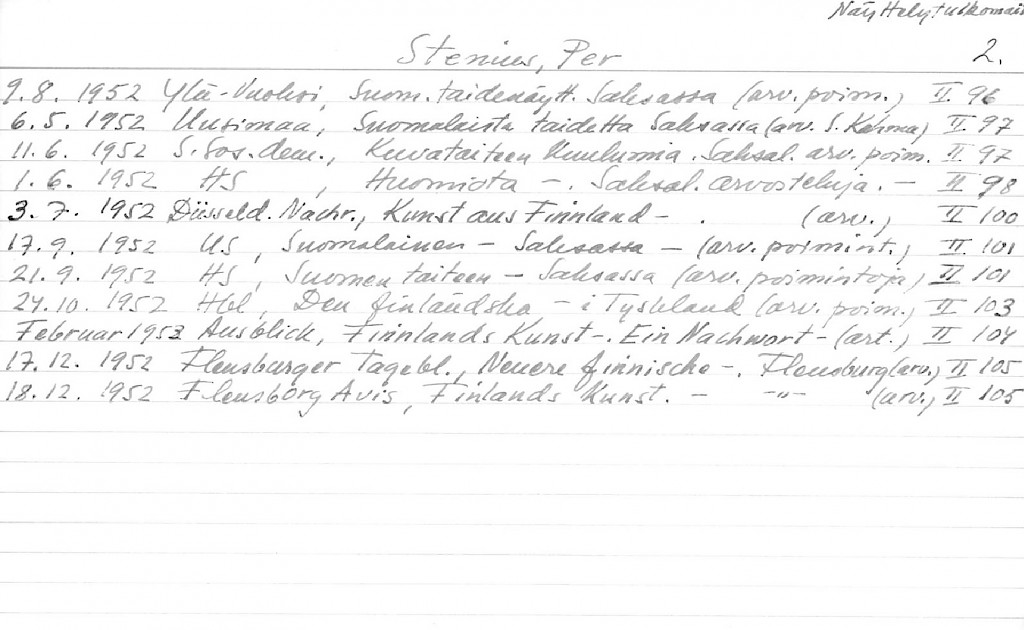 Näyttelyt ulkomail
Stenius, Per 2.
9.8. 1952 Ylä-Vuoksi, Suom. taidenäytt. Saksassa (arv. poim.) II 96
6.5. 1952 Uusimaa, Suomalaista taidetta Saksassa (arv. S. Karma) II 97
11.6. 1952 S. Sos. dem., Kuvataiteen kuulumia. Saksal. arv. poim. II 97
1.6. 1952 HS, Huomiota -. Saksal. arvosteluja. - II 98
3.7. 1952 Düsseld. Nachr., Kunst aus Finnland - . (arv.) II 100
17.9. 1952 US, Suomalainen - Saksassa - (arv. poimint.) II 101
21.9. 1952 HS, Suomen taiteen - Saksassa (arv. poimintoja) II 101
24.10. 1952 Hbl, Den finländska - i Tyskland (arv. poim.) II 103
Februar 1953 Ausblick, Finnlands Kunst -. Ein Nachwort - (art.) II 104
17.12. 1952 Flensburger Tagebl., Neuere finnische -. Flensburg (arv.) II 105
18.12. 1952 Flensborg Avis, Finlands Kunst. - -"- (arv.) II 105